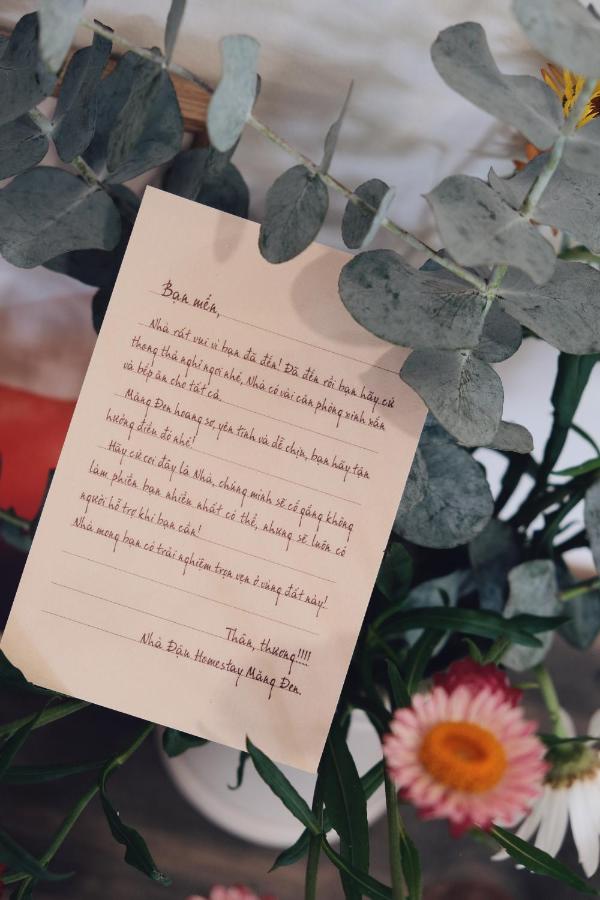 Bạn mến,
Nhà rất vui vì bạn đã đến! Đã đến rồi bạn hãy cứ
thong thả nghỉ ngơi nhé, Nhà có vài căn phòng xinh xắn
và bếp ăn cho tất cả.
Măng Đen hoang sơ, yên tĩnh và dễ chịu, bạn hãy tận
hưởng điều đó nhé!
Hãy cứ coi đây là Nhà, chúng mình sẽ cố gắng không
làm phiền bạn nhiều nhất có thể, nhưng sẽ luôn có
người hỗ trợ khi bạn cần!
Nhà mong bạn có trải nghiệm trọn vẹn ở vùng đất này!
Thân, thương!!!!
Nhà Đậu Homestay Măng Đen.